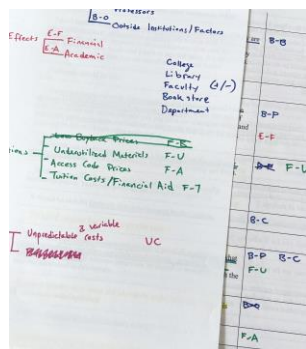 B-O Outside Institutions/Factors
Effects E-F Financial
E-A Academic
College
Library
Faculty (+/-)
Bookstore
Department
Low Buyback Prices F-B
Underutilized Materials F-U
Access Code Prices F-A
Tuition Costs/Financial Aid F-T
& variable
Unpredictable costs UC
B-B
B-P
E-F
F-U
B-C
B-P B-C
F-U
F-A